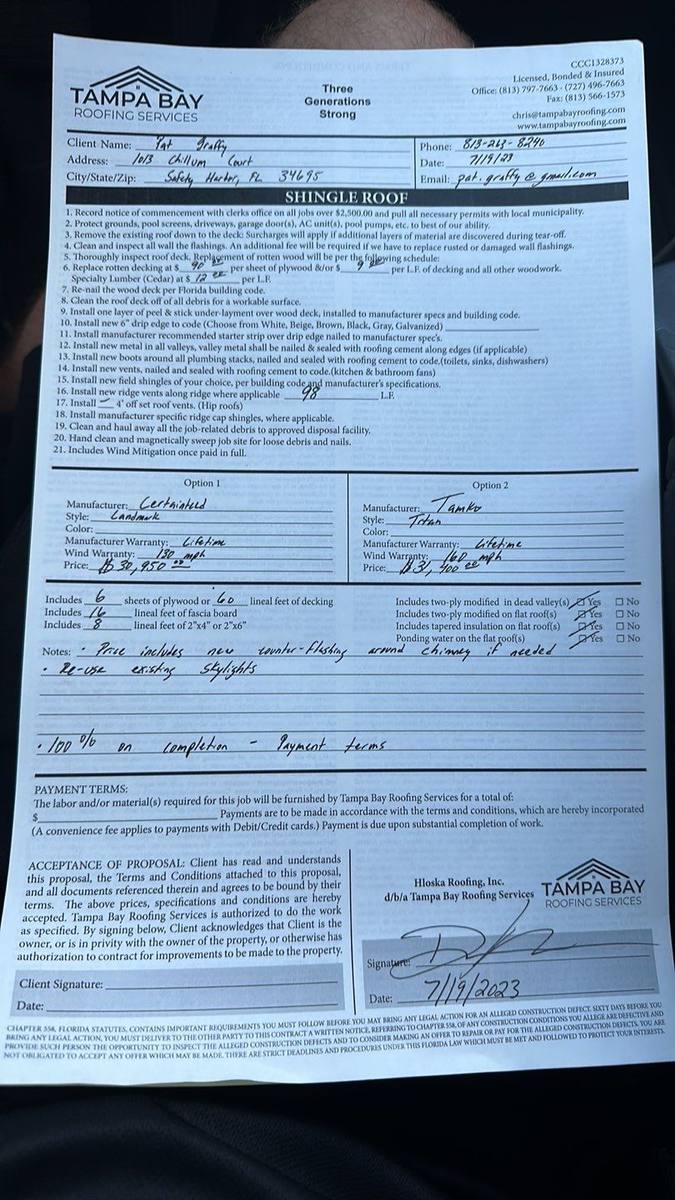 CCC1328373
Licensed, Bonded & Insured
Office: (813) 797-7663 · (727) 496-7663
Fax: (813) 566-1573
chris@tampabayroofing.com
www.tampabayroofing.com
TAMPA BAY
ROOFING SERVICES
Three
Generations
Strong
Client Name: Pat Graffy
Address: 1013 Chillum Court
City/State/Zip: Safety Harbor, FL 34695
Phone: 813-263-8240
Date: 7/19/23
Email: pat.graffy@gmail.com
SHINGLE ROOF
1. Record notice of commencement with clerks office on all jobs over $2,500.00 and pull all necessary permits with local municipality.
2. Protect grounds, pool screens, driveways, garage door(s), AC unit(s), pool pumps, etc. to best of our ability.
3. Remove the existing roof down to the deck: Surcharges will apply if additional layers of material are discovered during tear-off.
4. Clean and inspect all wall the flashings. An additional fee will be required if we have to replace rusted or damaged wall flashings.
5. Thoroughly inspect roof deck. Replacement of rotten wood will be per the following schedule:
6. Replace rotten decking at $ 90 00 per sheet of plywood &/or $ 9 00 per L.F. of decking and all other woodwork.
Specialty Lumber (Cedar) at $ 12 00 per L.F.
7. Re-nail the wood deck per Florida building code.
8. Clean the roof deck off of all debris for a workable surface.
9. Install one layer of peel & stick under-layment over wood deck, installed to manufacturer specs and building code.
10. Install new 6" drip edge to code (Choose from White, Beige, Brown, Black, Gray, Galvanized)
11. Install manufacturer recommended starter strip over drip edge nailed to manufacturer spec's.
12. Install new metal in all valleys, valley metal shall be nailed & sealed with roofing cement along edges (if applicable)
13. Install new boots around all plumbing stacks, nailed and sealed with roofing cement to code.(toilets, sinks, dishwashers)
14. Install new vents, nailed and sealed with roofing cement to code.(kitchen & bathroom fans)
15. Install new field shingles of your choice, per building code and manufacturer's specifications.
16. Install new ridge vents along ridge where applicable 98 L.F.
17. Install — 4' off set roof vents. (Hip roofs)
18. Install manufacturer specific ridge cap shingles, where applicable.
19. Clean and haul away all the job-related debris to approved disposal facility.
20. Hand clean and magnetically sweep job site for loose debris and nails.
21. Includes Wind Mitigation once paid in full.
Option 1
Manufacturer: Certainteed
Style: Landmark
Color:
Manufacturer Warranty: Lifetime
Wind Warranty: 130 mph
Price: $30,950 00
Option 2
Manufacturer: Tamko
Style: Titan
Color:
Manufacturer Warranty: Lifetime
Wind Warranty: 160 mph
Price: $31,400 00
Includes 6 sheets of plywood or 60 lineal feet of decking
Includes 16 lineal feet of fascia board
Includes 8 lineal feet of 2"x4" or 2"x6"
Includes two-ply modified in dead valley(s) Yes No
Includes two-ply modified on flat roof(s) Yes No
Includes tapered insulation on flat roof(s) Yes No
Ponding water on the flat roof(s) Yes No
Notes: · Price includes new counter-flashing around chimney if needed
· Re-use existing skylights
· 100% on completion - Payment terms
PAYMENT TERMS:
The labor and/or material(s) required for this job will be furnished by Tampa Bay Roofing Services for a total of:
$ Payments are to be made in accordance with the terms and conditions, which are hereby incorporated
(A convenience fee applies to payments with Debit/Credit cards.) Payment is due upon substantial completion of work.
ACCEPTANCE OF PROPOSAL: Client has read and understands
this proposal, the Terms and Conditions attached to this proposal,
and all documents referenced therein and agrees to be bound by their
terms. The above prices, specifications and conditions are hereby
accepted. Tampa Bay Roofing Services is authorized to do the work
as specified. By signing below, Client acknowledges that Client is the
owner, or is in privity with the owner of the property, or otherwise has
authorization to contract for improvements to be made to the property.
Client Signature:
Date:
Hloska Roofing, Inc.
d/b/a Tampa Bay Roofing Services
TAMPA BAY
ROOFING SERVICES
Signature:
Date: 7/19/2023
CHAPTER 558, FLORIDA STATUTES, CONTAINS IMPORTANT REQUIREMENTS YOU MUST FOLLOW BEFORE YOU MAY BRING ANY LEGAL ACTION FOR AN ALLEGED CONSTRUCTION DEFECT. SIXTY DAYS BEFORE YOU
BRING ANY LEGAL ACTION, YOU MUST DELIVER TO THE OTHER PARTY TO THIS CONTRACT A WRITTEN NOTICE, REFERRING TO CHAPTER 558, OF ANY CONSTRUCTION CONDITIONS YOU ALLEGE ARE DEFECTIVE AND
PROVIDE SUCH PERSON THE OPPORTUNITY TO INSPECT THE ALLEGED CONSTRUCTION DEFECTS AND TO CONSIDER MAKING AN OFFER TO REPAIR OR PAY FOR THE ALLEGED CONSTRUCTION DEFECTS. YOU ARE
NOT OBLIGATED TO ACCEPT ANY OFFER WHICH MAY BE MADE. THERE ARE STRICT DEADLINES AND PROCEDURES UNDER THIS FLORIDA LAW WHICH MUST BE MET AND FOLLOWED TO PROTECT YOUR INTERESTS.